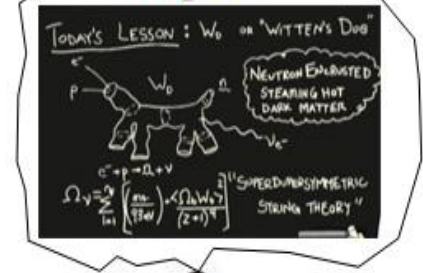 TODAY'S LESSON : W₀ OR "WITTEN'S DOG"
e⁻
P
W₀
n
NEUTRON ENCRUSTED
STEAMING HOT
DARK MATTER
νe⁻
e⁻+p→n+ν
"SUPERDUPERSYMMETRIC
STRING THEORY"